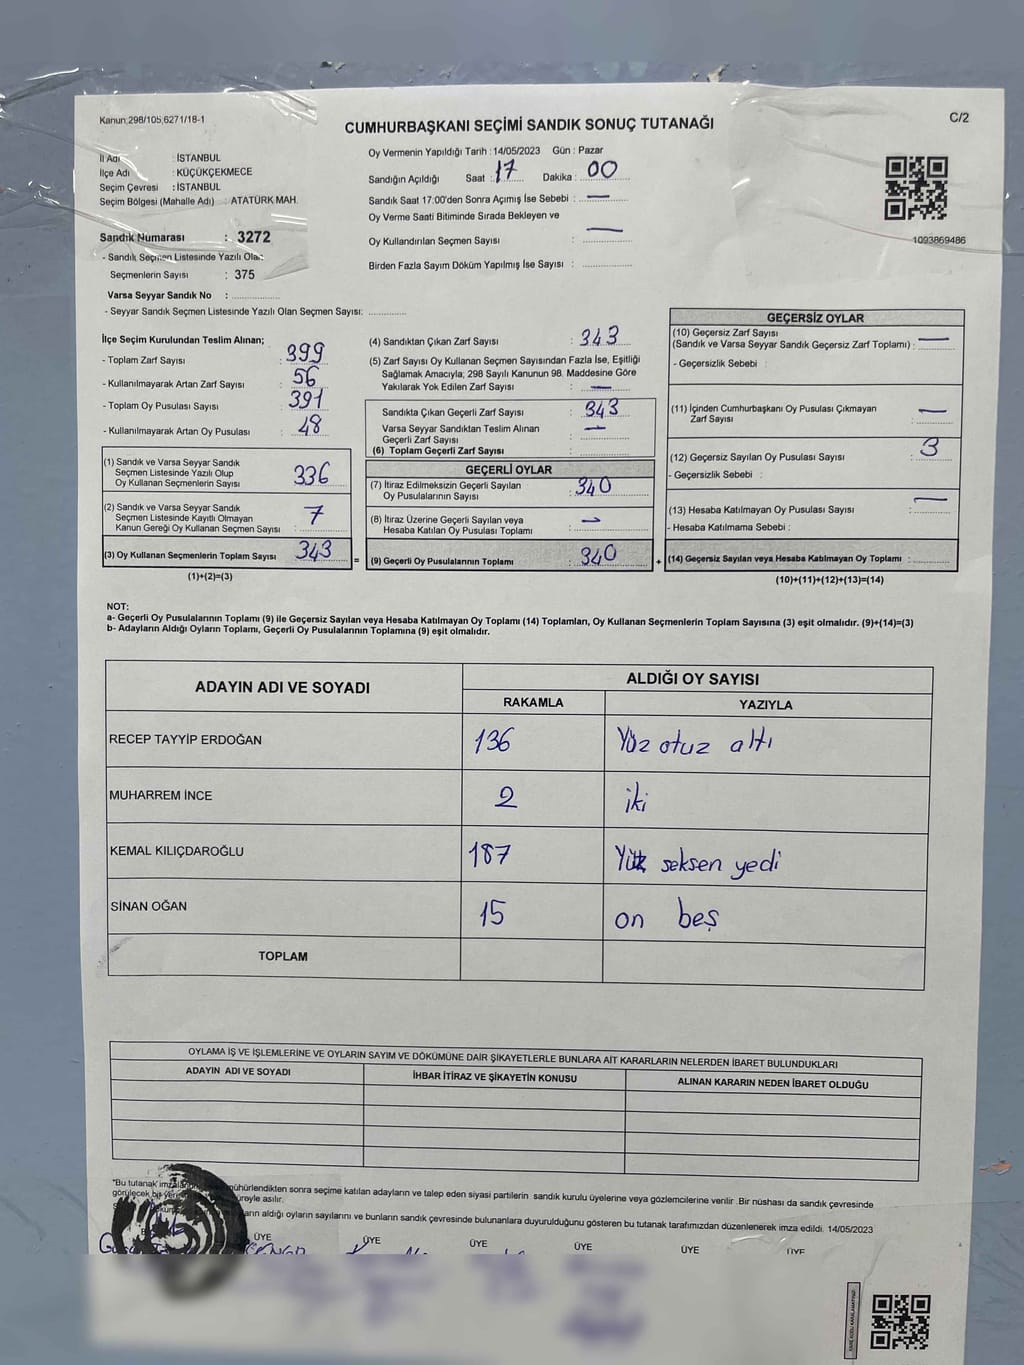 Kanun;298/105,6271/18-1
C/2
CUMHURBAŞKANI SEÇİMİ SANDIK SONUÇ TUTANAĞI
İl Adı : İSTANBUL
İlçe Adı : KÜÇÜKÇEKMECE
Seçim Çevresi : İSTANBUL
Seçim Bölgesi (Mahalle Adı) : ATATÜRK MAH.
Sandık Numarası : 3272
- Sandık Seçmen Listesinde Yazılı Olan
Seçmenlerin Sayısı : 375
Varsa Seyyar Sandık No :
- Seyyar Sandık Seçmen Listesinde Yazılı Olan Seçmen Sayısı:
Oy Vermenin Yapıldığı Tarih : 14/05/2023 Gün : Pazar
Sandığın Açıldığı Saat : 17 Dakika : 00
Sandık Saat 17:00'den Sonra Açımış İse Sebebi : —
Oy Verme Saati Bitiminde Sırada Bekleyen ve
Oy Kullandırılan Seçmen Sayısı : —
Birden Fazla Sayım Döküm Yapılmış İse Sayısı :
1093869486
İlçe Seçim Kurulundan Teslim Alınan;
- Toplam Zarf Sayısı : 399
- Kullanılmayarak Artan Zarf Sayısı : 56
- Toplam Oy Pusulası Sayısı : 391
- Kullanılmayarak Artan Oy Pusulası : 48
(1) Sandık ve Varsa Seyyar Sandık
Seçmen Listesinde Yazılı Olup
Oy Kullanan Seçmenlerin Sayısı 336
(2) Sandık ve Varsa Seyyar Sandık
Seçmen Listesinde Kayıtlı Olmayan
Kanun Gereği Oy Kullanan Seçmen Sayısı : 7
(3) Oy Kullanan Seçmenlerin Toplam Sayısı 343
(1)+(2)=(3)
=
(4) Sandıktan Çıkan Zarf Sayısı : 343
(5) Zarf Sayısı Oy Kullanan Seçmen Sayısından Fazla İse, Eşitliği
Sağlamak Amacıyla, 298 Sayılı Kanunun 98. Maddesine Göre
Yakılarak Yok Edilen Zarf Sayısı : —
Sandıkta Çıkan Geçerli Zarf Sayısı : 343
Varsa Seyyar Sandıktan Teslim Alınan
Geçerli Zarf Sayısı : —
(6) Toplam Geçerli Zarf Sayısı :
GEÇERLİ OYLAR
(7) İtiraz Edilmeksizin Geçerli Sayılan
Oy Pusulalarının Sayısı : 340
(8) İtiraz Üzerine Geçerli Sayılan veya
Hesaba Katılan Oy Pusulası Toplamı : —
(9) Geçerli Oy Pusulalarının Toplamı : 340
+
GEÇERSİZ OYLAR
(10) Geçersiz Zarf Sayısı
(Sandık ve Varsa Seyyar Sandık Geçersiz Zarf Toplamı) : —
- Geçersizlik Sebebi :
(11) İçinden Cumhurbaşkanı Oy Pusulası Çıkmayan
Zarf Sayısı : —
(12) Geçersiz Sayılan Oy Pusulası Sayısı : 3
- Geçersizlik Sebebi :
(13) Hesaba Katılmayan Oy Pusulası Sayısı : —
- Hesaba Katılmama Sebebi :
(14) Geçersiz Sayılan veya Hesaba Katılmayan Oy Toplamı :
(10)+(11)+(12)+(13)=(14)
NOT:
a- Geçerli Oy Pusulalarının Toplamı (9) ile Geçersiz Sayılan veya Hesaba Katılmayan Oy Toplamı (14) Toplamları, Oy Kullanan Seçmenlerin Toplam Sayısına (3) eşit olmalıdır. (9)+(14)=(3)
b- Adayların Aldığı Oyların Toplamı, Geçerli Oy Pusulalarının Toplamına (9) eşit olmalıdır.
ADAYIN ADI VE SOYADI
ALDIĞI OY SAYISI
RAKAMLA YAZIYLA
RECEP TAYYİP ERDOĞAN 136 Yüz otuz altı
MUHARREM İNCE 2 iki
KEMAL KILIÇDAROĞLU 187 Yüz seksen yedi
SİNAN OĞAN 15 on beş
TOPLAM
OYLAMA İŞ VE İŞLEMLERİNE VE OYLARIN SAYIM VE DÖKÜMÜNE DAİR ŞİKAYETLERLE BUNLARA AİT KARARLARIN NELERDEN İBARET BULUNDUKLARI
ADAYIN ADI VE SOYADI İHBAR İTİRAZ VE ŞİKAYETİN KONUSU ALINAN KARARIN NEDEN İBARET OLDUĞU
"Bu tutanak mühürlendikten sonra seçime katılan adayların ve talep eden siyasi partilerin sandık kurulu üyelerine veya gözlemcilerine verilir .Bir nüshası da sandık çevresinde
görülecek bir süreyle asılır.
aldığı oyların sayılarını ve bunların sandık çevresinde bulunanlara duyurulduğunu gösteren bu tutanak tarafımızdan düzenlenerek imza edildi. 14/05/2023
ÜYE ÜYE ÜYE ÜYE ÜYE ÜYE